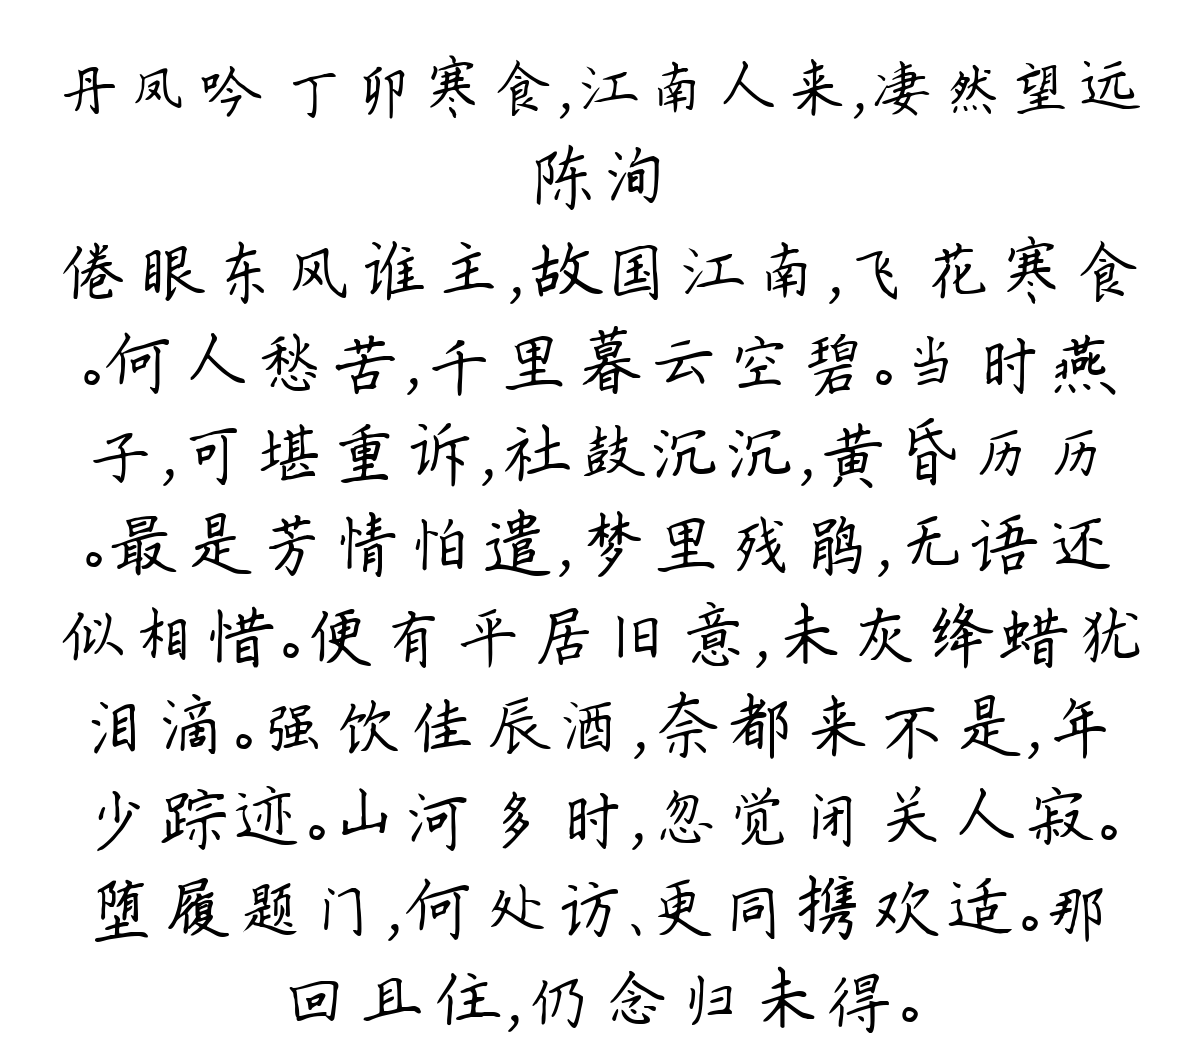 丹凤吟 丁卯寒食,江南人来,凄然望远
陈洵
倦眼东风谁主,故国江南,飞花寒食
。何人愁苦,千里暮云空碧。当时燕
子,可堪重诉,社鼓沉沉,黄昏历历
。最是芳情怕遣,梦里残鹃,无语还
似相惜。便有平居旧意,未灰绛蜡犹
泪滴。强饮佳辰酒,奈都来不是,年
少踪迹。山河多时,忽觉闭关人寂。
堕履题门,何处访、更同携欢适。那
回且住,仍念归未得。